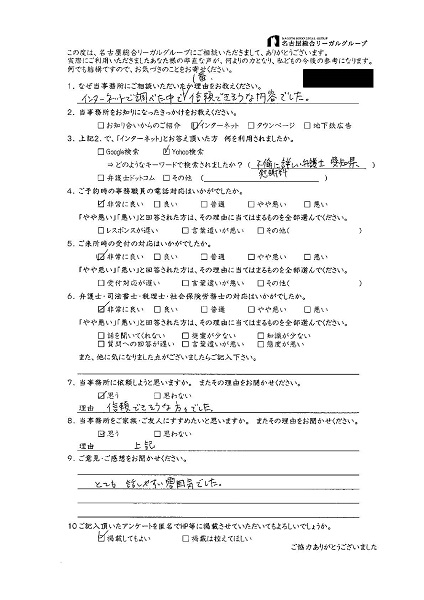 NAGOYA SOGO LEGAL GROUP
名古屋総合リーガルグループ
この度は、名古屋総合リーガルグループにご相談いただきまして、ありがとうございます。
実際にご利用いただきましたあなた様の率直な声が、何よりの力となり、私どもの今後の参考になります。
何でも結構ですので、お気づきのことをお寄せください。
1．なぜ当事務所にご相談いただいたか理由をお教えください。
インターネットで調べた中で 信頼できそうな内容でした。
2．当事務所をお知りになったきっかけをお教えください。
□お知り合いからのご紹介 ☑インターネット □タウンページ □地下鉄広告
3．上記2．で、「インターネット」とお答え頂いた方 何を利用されましたか。
□Google検索 ☑Yahoo検索
⇒どのようなキーワードで検索されましたか？（不倫に詳しい弁護士 愛知県、）
慰謝料
□弁護士ドットコム □その他（ ）
4．ご予約時の事務職員の電話対応はいかがでしたか。
☑非常に良い □良い □普通 □やや悪い □悪い
「やや悪い」「悪い」と回答された方は、その理由に当てはまるものを全部選んでください。
□レスポンスが遅い □言葉遣いが悪い □その他（ ）
5．ご来所時の受付の対応はいかがでしたか。
☑非常に良い □良い □普通 □やや悪い □悪い
「やや悪い」「悪い」と回答された方は、その理由に当てはまるものを全部選んでください。
□受付対応が遅い □言葉遣いが悪い □その他（ ）
6．弁護士・司法書士・税理士・社会保険労務士の対応はいかがでしたか。
☑非常に良い □良い □普通 □やや悪い □悪い
「やや悪い」「悪い」と回答された方は、その理由に当てはまるものを全部選んでください。
□話を聞いてくれない □提案が少ない □知識が少ない
□質問への回答が遅い □言葉遣いが悪い □態度が悪い
また、他に気になりました点がございましたらご記入下さい。
7．当事務所に依頼しようと思いますか。 またその理由をお聞かせください。
☑思う □思わない
理由 信頼できそうな方でした。
8．当事務所をご家族・ご友人にすすめたいと思いますか。 またその理由をお聞かせください。
☑思う □思わない
理由 上記
9．ご意見・ご感想をお聞かせください。
とても 話しやすい雰囲気でした。
10 ご記入頂いたアンケートを匿名でHP等に掲載させていただいてもよろしいでしょうか。
☑掲載してもよい □掲載は控えてほしい
ご協力ありがとうございました